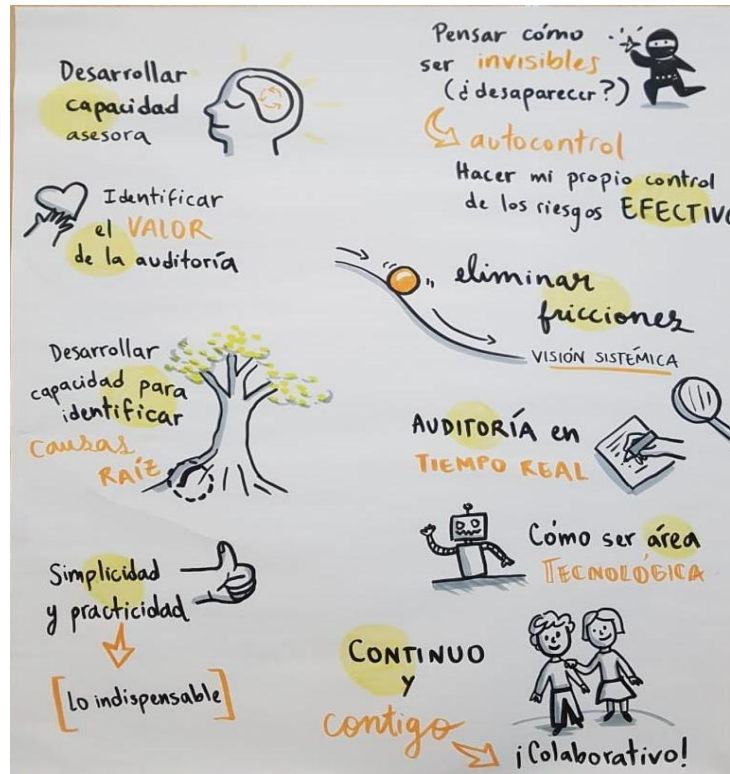 Desarrollar
capacidad
asesora
Identificar
el VALOR
de la auditoría
Desarrollar
capacidad para
identificar
causas
RAÍZ
Simplicidad
y practicidad
[Lo indispensable]
Pensar cómo
ser invisibles
(¿desaparecer?)
autocontrol
Hacer mi propio control
de los riesgos EFECTIVO
eliminar
fricciones
VISIÓN SISTÉMICA
AUDITORÍA en
TIEMPO REAL
Cómo ser área
TECNOLÓGICA
CONTINUO
y
contigo
¡Colaborativo!